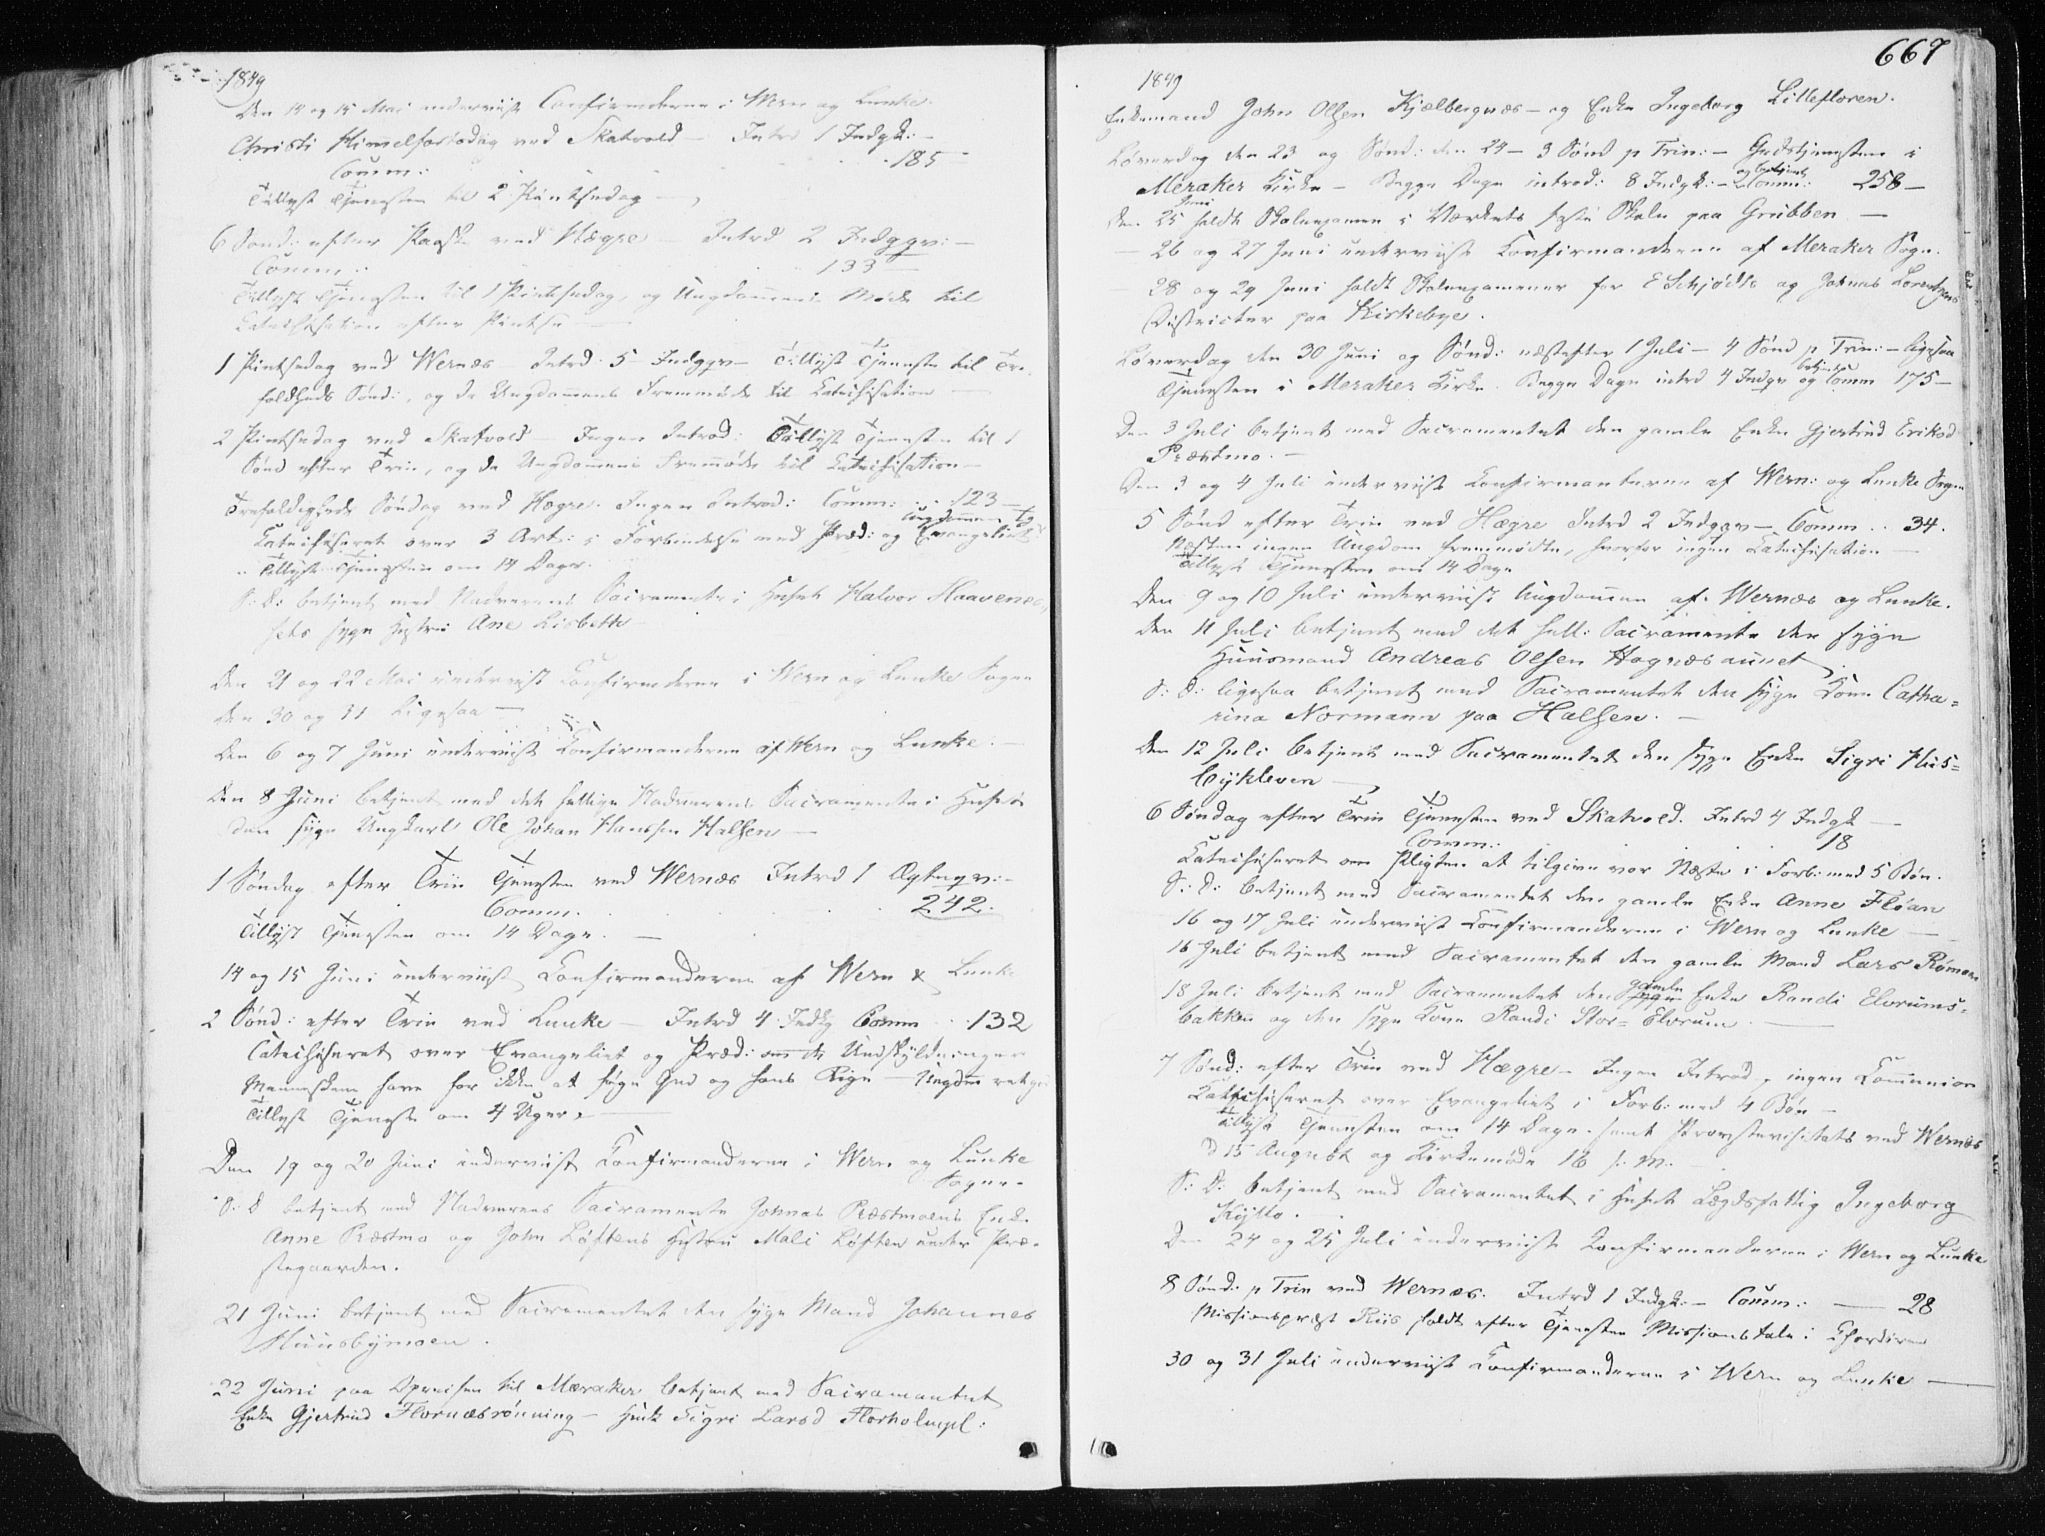 1849
Den 14 og 15 Mai underviist Confirmderne i Wern og Lunke.
Christi Himmelfartsdag ved Skatvold – Intrd 1 Indgk: –
Comm: . . . . 185 –
Tillyst Tjenesten til 2 Pintsedag –
6 Sønd: efter Paaske ved Hægre – Intrd 2 Indggv: –
Comm: . . . 133 –
Tillyst Tjenesten til 1 Pintsedag, og Ungdommens Møde til
Catechisation efter Pintse –
1 Pintsedag ved Wernæs Intrd: 5 Indggv – Tillyst Tjeneste til Tre-
foldheds Sønd:, og da Ungdommens Fremmøde til Catechisation –
2 Pintsedag ved Skatvold – Ingen Introd: Tillyst Tjenesten til 1
Sønd efter Trin, og da Ungdomens Fremmøde til Catechisation –
Trefoldigheds Søndag ved Hægre. Ingen Introd: Comm: . . . 123 –
Catechiseret over 3 Art: i Forbindelse med Præd: og Evangeliet
Tillyst Tjenesten om 14 Dage.
S: D: betjent med Nadverens Sacramente i Huset Halvor Haavenæs
sets syge Hustrue Ane Lisbeth
Den 21 og 22 Mai underviist Confirmderne i Wern og Lunke Sogne
Den 30 og 31 ligesaa –
Den 6 og 7 Juni underviist Confirmanderne af Wern og Lunke. –
Den 8 Juni betjent med det hellige Nadverens Sacramente i Huset
den syge Ungkarl Ole Johan Hansen Halsen –
1 Søndag efter Trin Tjenesten ved Wernæs Intrd 1 Ægtegv: –
Comm. . . . 242.
Tillyst Tjenesten om 14 Dage. –
14 og 15 Juni underviist Confirmanderne af Wern & Lunke
2 Sønd: efter Trin ved Lunke – Intrd 4 Indg Comm . . 132
Catechiseret over Evangeliet og Præd: om de Undskyldninger
Menneskene have for ikke at søge Gud og hans Rige –
Tillyst Tjeneste om 4 Uger. –
Den 19 og 20 Juni underviist Confirmanderne i Wern og Lunke
Sogne.
S: D betjent med Nadverens Sacramente Johnas Præstmoens Enke
Anne Præstmo og John Løftens Hustru Mali Løften under Præ-
stegaarden.
21 Juni betjent med Sacramentet den syge Mand Johannes
Muusbymoen.
22 Juni paa Opreisen til Meraker betjent med Sacramentet
Enke Gjertrud Flornæsrønning – Sigri Larsd Florholmpl:
667
1849
Enkemand John Olsen Kjelbergnæs – og Enke Ingeborg Lillefloren.
Løverdag den 23 og Sønd: den 24 – 3 Sønd p Trin: – Gudstjenesten i
Meraker Kirke – Begge Dage introd: 8 Indgk: – og betjent Comm: 258 –
Den 25 Juni holdt Skoleexamen i Værkets faste Skole paa Grubben –
– 26 og 27 Juni underviist Confirmanderne af Meraker Sogn.
– 28 og 29 Juni holdt Skoleexamener for E Schjødts og Johnas Lorentzens
Districter paa Kirkebye.
Løverdag den 30 Juni og Sønd: næstefter 1 Juli – 4 Sønd p Trin: – ligesaa
Tjenesten i Meraker Kirke. Begge Dage intrd 4 Indgv og betjent Comm 175 –
Den 3 Juli betjent med Sacramentet den gamle Enke Gjertrud Eriksd
Præstmo. –
Den 3 og 4 Juli underviist Confirmanterne af Wern: og Lunke Sogne
5 Sønd efter Trin ved Hægre Intrd 2 Indggv – Comm . . 34.
Næsten ingen Ungdom fremmødte, hvorfor ingen Catechisation –
Tillyst Tjenesten om 14 Dage
Den 9 og 10 Juli underviist Ungdommen af Wernæs og Lunke.
Den 11 Juli betjent med det hell: Sacramente den syge
Huusmand Andreas Olsen Hognæsaunet
S: D: ligesaa betjent med Sacramentet den syge Kone Catha-
rina Normann paa Halsen. –
Den 12 Juli betjent med Sacramentet den syge Enke Sigri Hus-
bykleven –
6 Søndag efter Trin Tjenesten ved Skatvold. Intrd 4 Indgk –
Comm: . . . 18
Catechiseret om Pligten at tilgive vor Næste i Forb: med 5 Bøn.
S: D: betjent med Sacramentet den gamle Enke Anne Fløan
16 og 17 Juli underviist Confirmanderne i Wern og Lunke –
16 Juli betjent med Sacramentet den gamle Mand Lars Rømoe
18 Juli betjent med Sacramentet den gamle Enke Randi Elvrums-
bakken og den syge Kone Randi Stor-Elvrum. –
7 Sønd: efter Trin ved Hægre – Ingen Introd, ingen Communion
Catechiseret over Evangeliet i Forb: med 4 Bøn –
Tillyst Tjenesten om 14 Dage. samt Provstevisitats ved Wernæs
d 15 August og Kirkemøde 16 s: M. –
S: D: betjent med Sacramentet i Huset Lægdsfattig Ingeborg
Kyllo. –
Den 24 og 25 Juli underviist Confirmanderne i Wern og Lunke
8 Sønd: p Trin ved Wernæs. Intrd 1 Indgk: – Comm: – 28
Missionspræst Riis holdt efter Tjenesten Missionstale i Chordøren
30 og 31 Juli underviist Confirmanderne i Wern og Lunke –